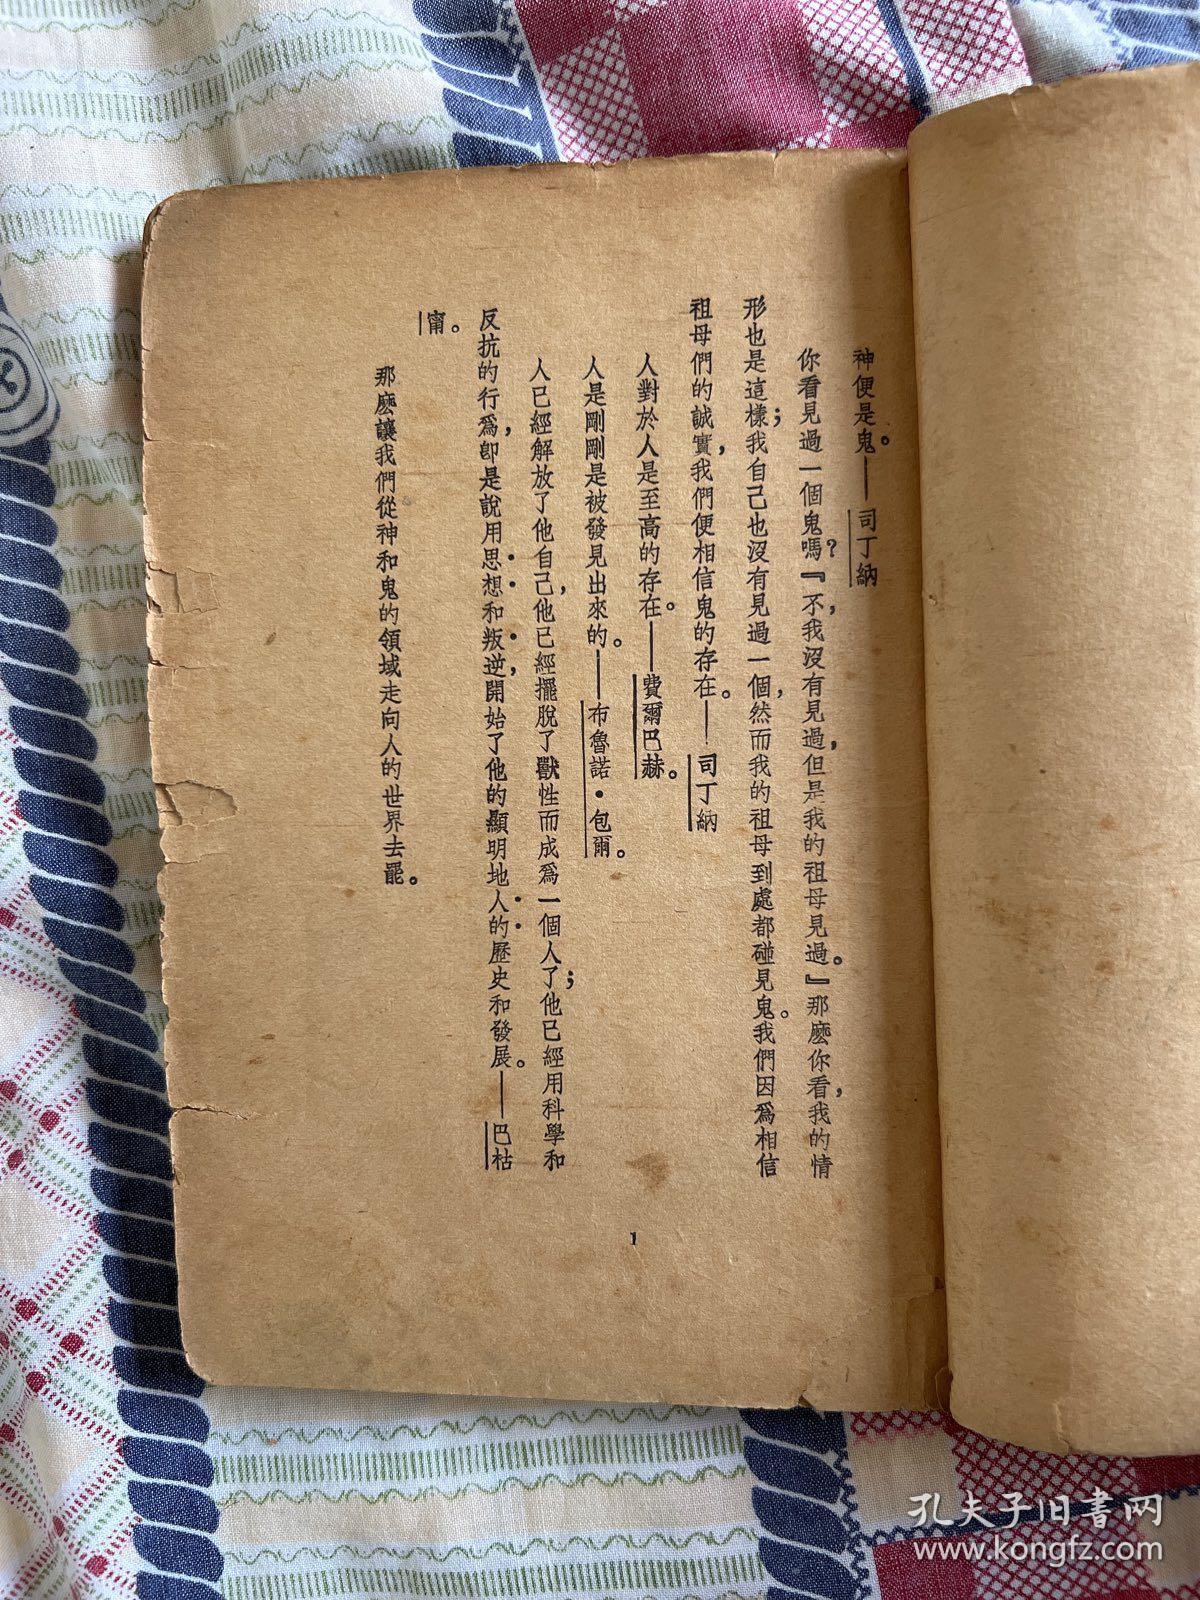 神便是鬼。——司丁納
你看見過一個鬼嗎？『不，我沒有見過，但是我的祖母見過。』那麼你看，我的情
形也是這樣；我自己也沒有見過一個，然而我的祖母到處都碰見鬼。我們因爲相信
祖母們的誠實，我們便相信鬼的存在。——司丁納
人對於人是至高的存在。——費爾巴赫。
人是剛剛是被發見出來的。——布魯諾·包爾。
人已經解放了他自己，他已經擺脫了獸性而成爲一個人了；他已經用科學和
反抗的行爲，卽是說用思想和叛逆，開始了他的顯明地人的歷史和發展。——巴枯
甯。
那麽讓我們從神和鬼的領域走向人的世界去罷。
1
孔夫子旧書网
www.kongfz.com